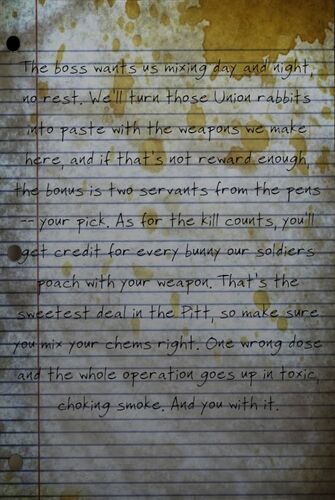 The boss wants us mixing day and night,
no rest. We'll turn those Union rabbits
into paste with the weapons we make
here, and if that's not reward enough,
the bonus is two servants from the pens
-- your pick. As for the kill counts, you'll
get credit for every bunny our soldiers
poach with your weapon. That's the
sweetest deal in the Pitt, so make sure
you mix your chems right. One wrong dose
and the whole operation goes up in toxic,
choking smoke. And you with it.